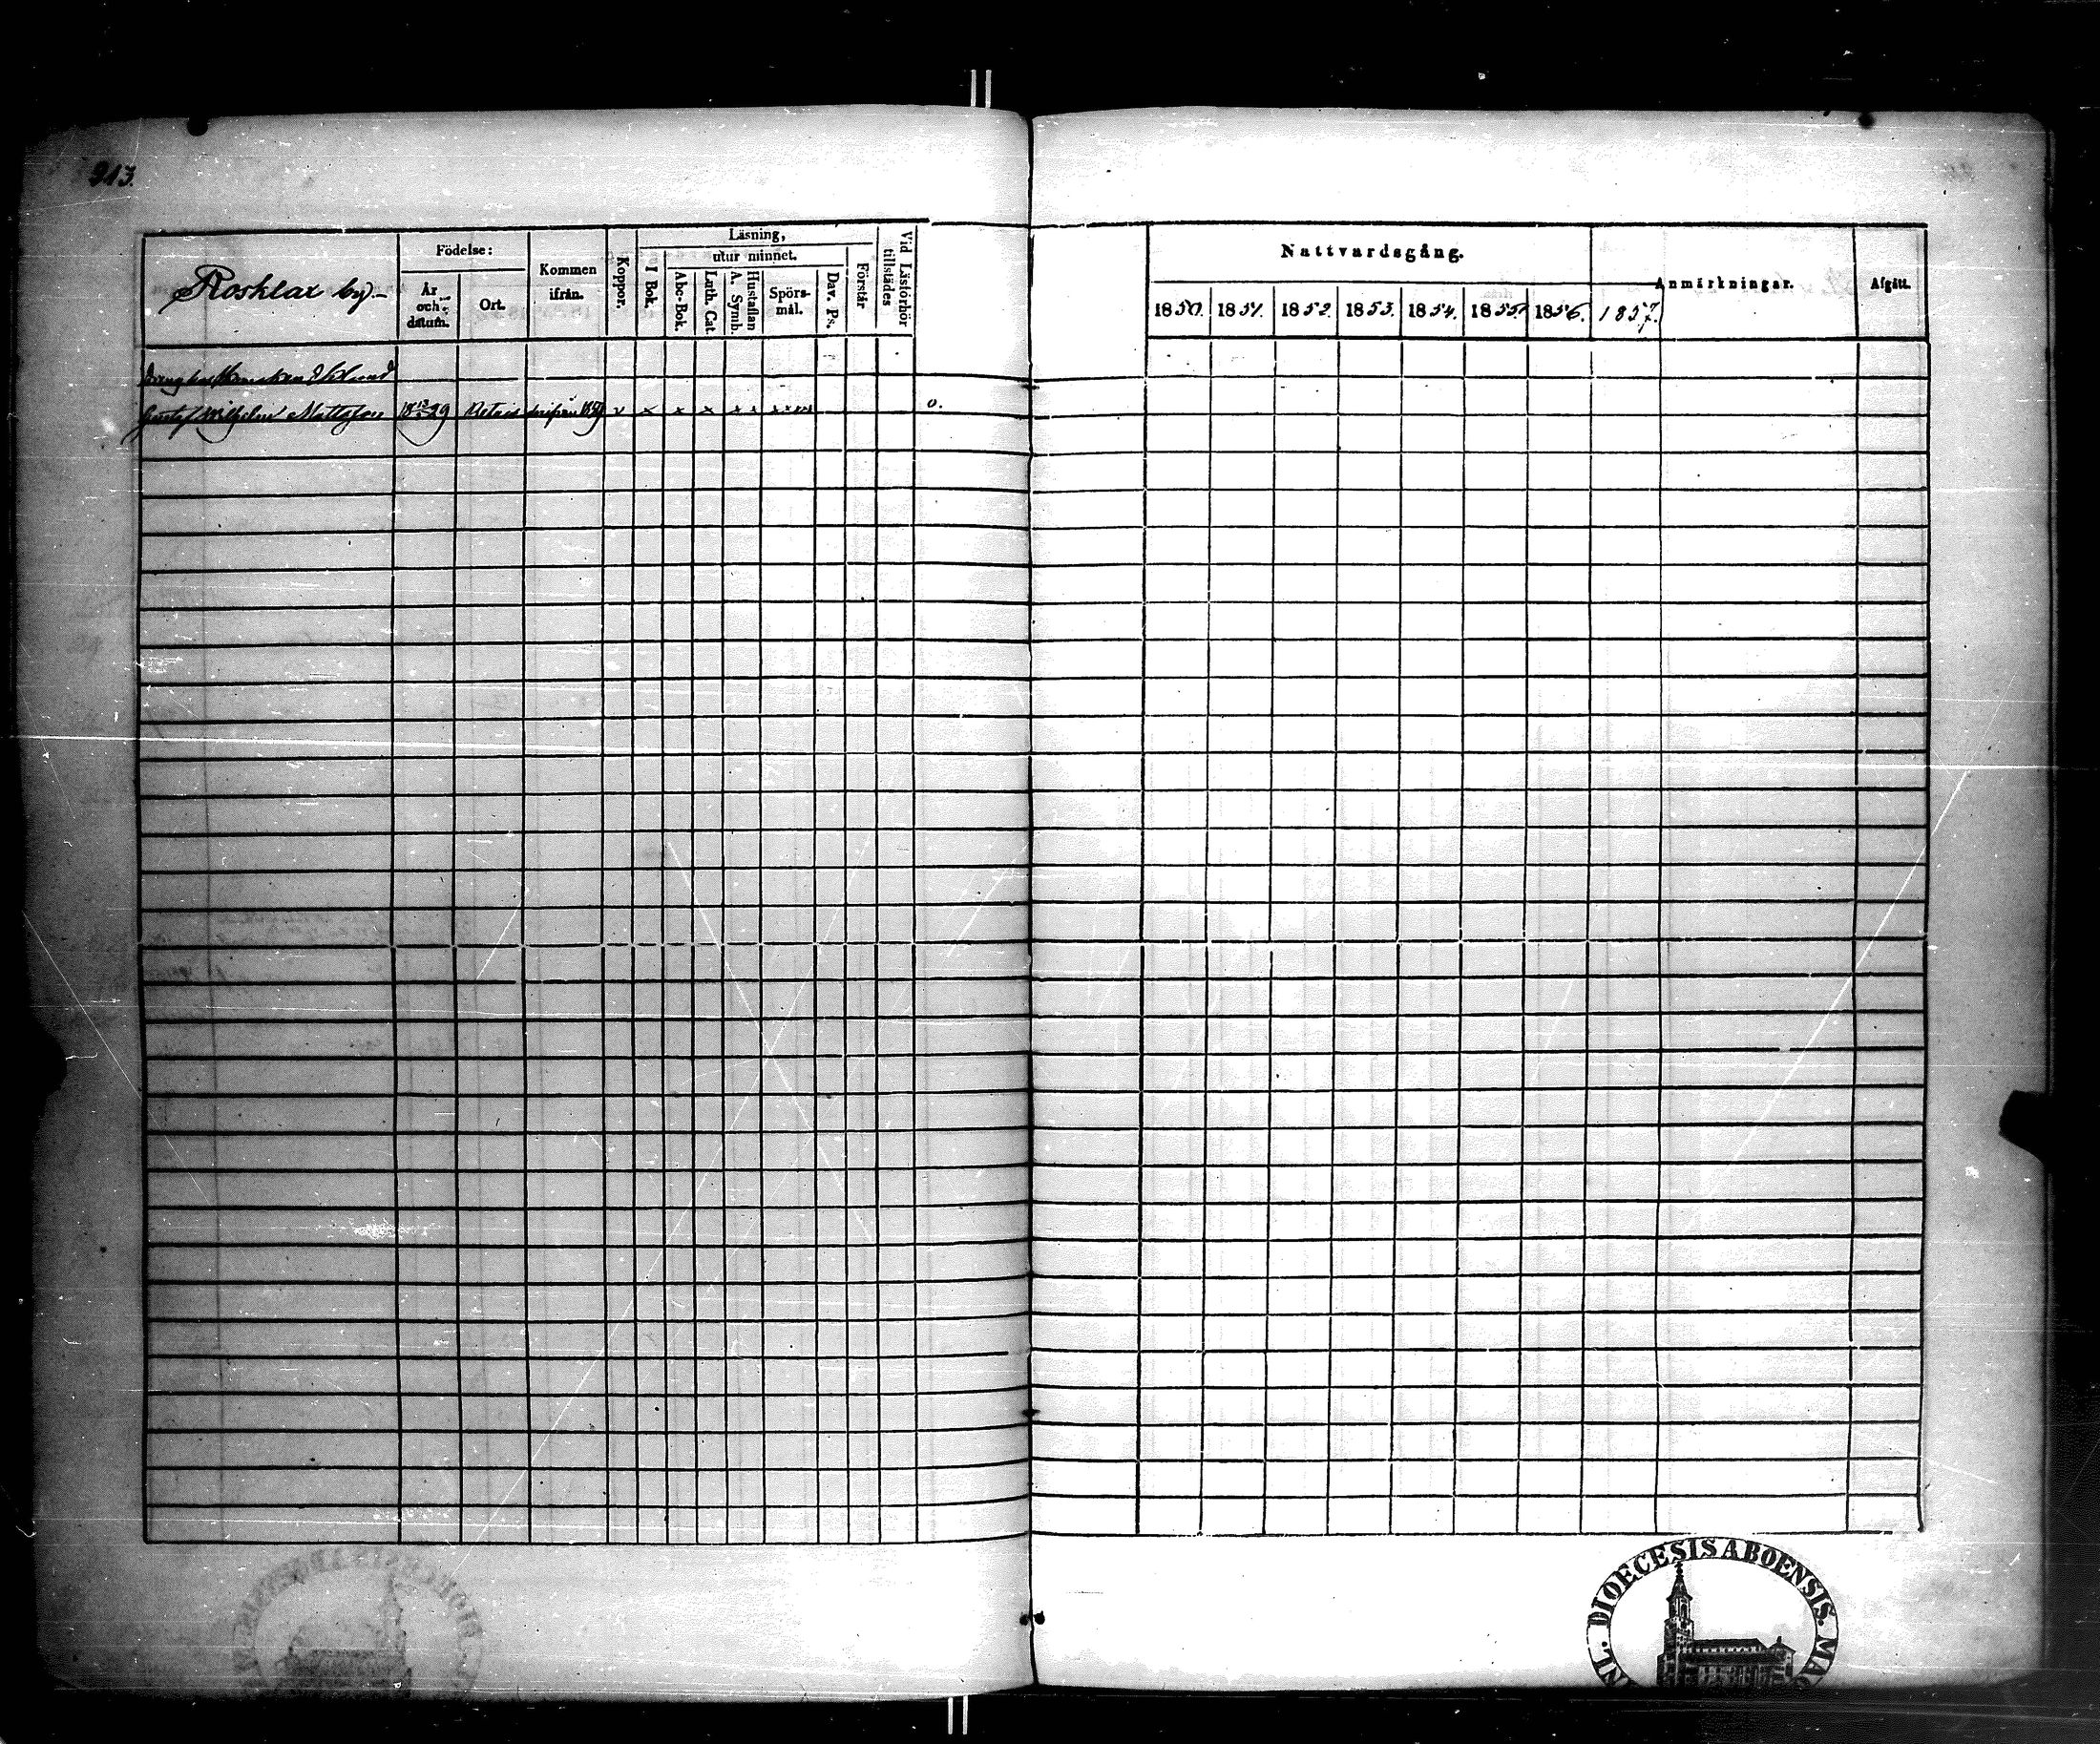 213.
Rosklax by.
Födelse:
År och datum.
Ort.
Kommen ifrån.
Koppor.
Läsning,
I Bok.
utur minnet.
Abc-Bok.
Luth. Cat.
A. Symb.
Hustaflan
Spörs-mål.
Dav. Ps.
Förstår
Vid Läsförhör tillstädes
Nattvardsgång.
1850. 1851. 1852. 1853. 1854. 1855. 1856. 1857.
Anmärkningar.
Afgått.
Eklund
Gustaf Wilhelm Mattsson 18 29 x x x x x x x x x x o.
DIOECESIS ABOENSIS. MA